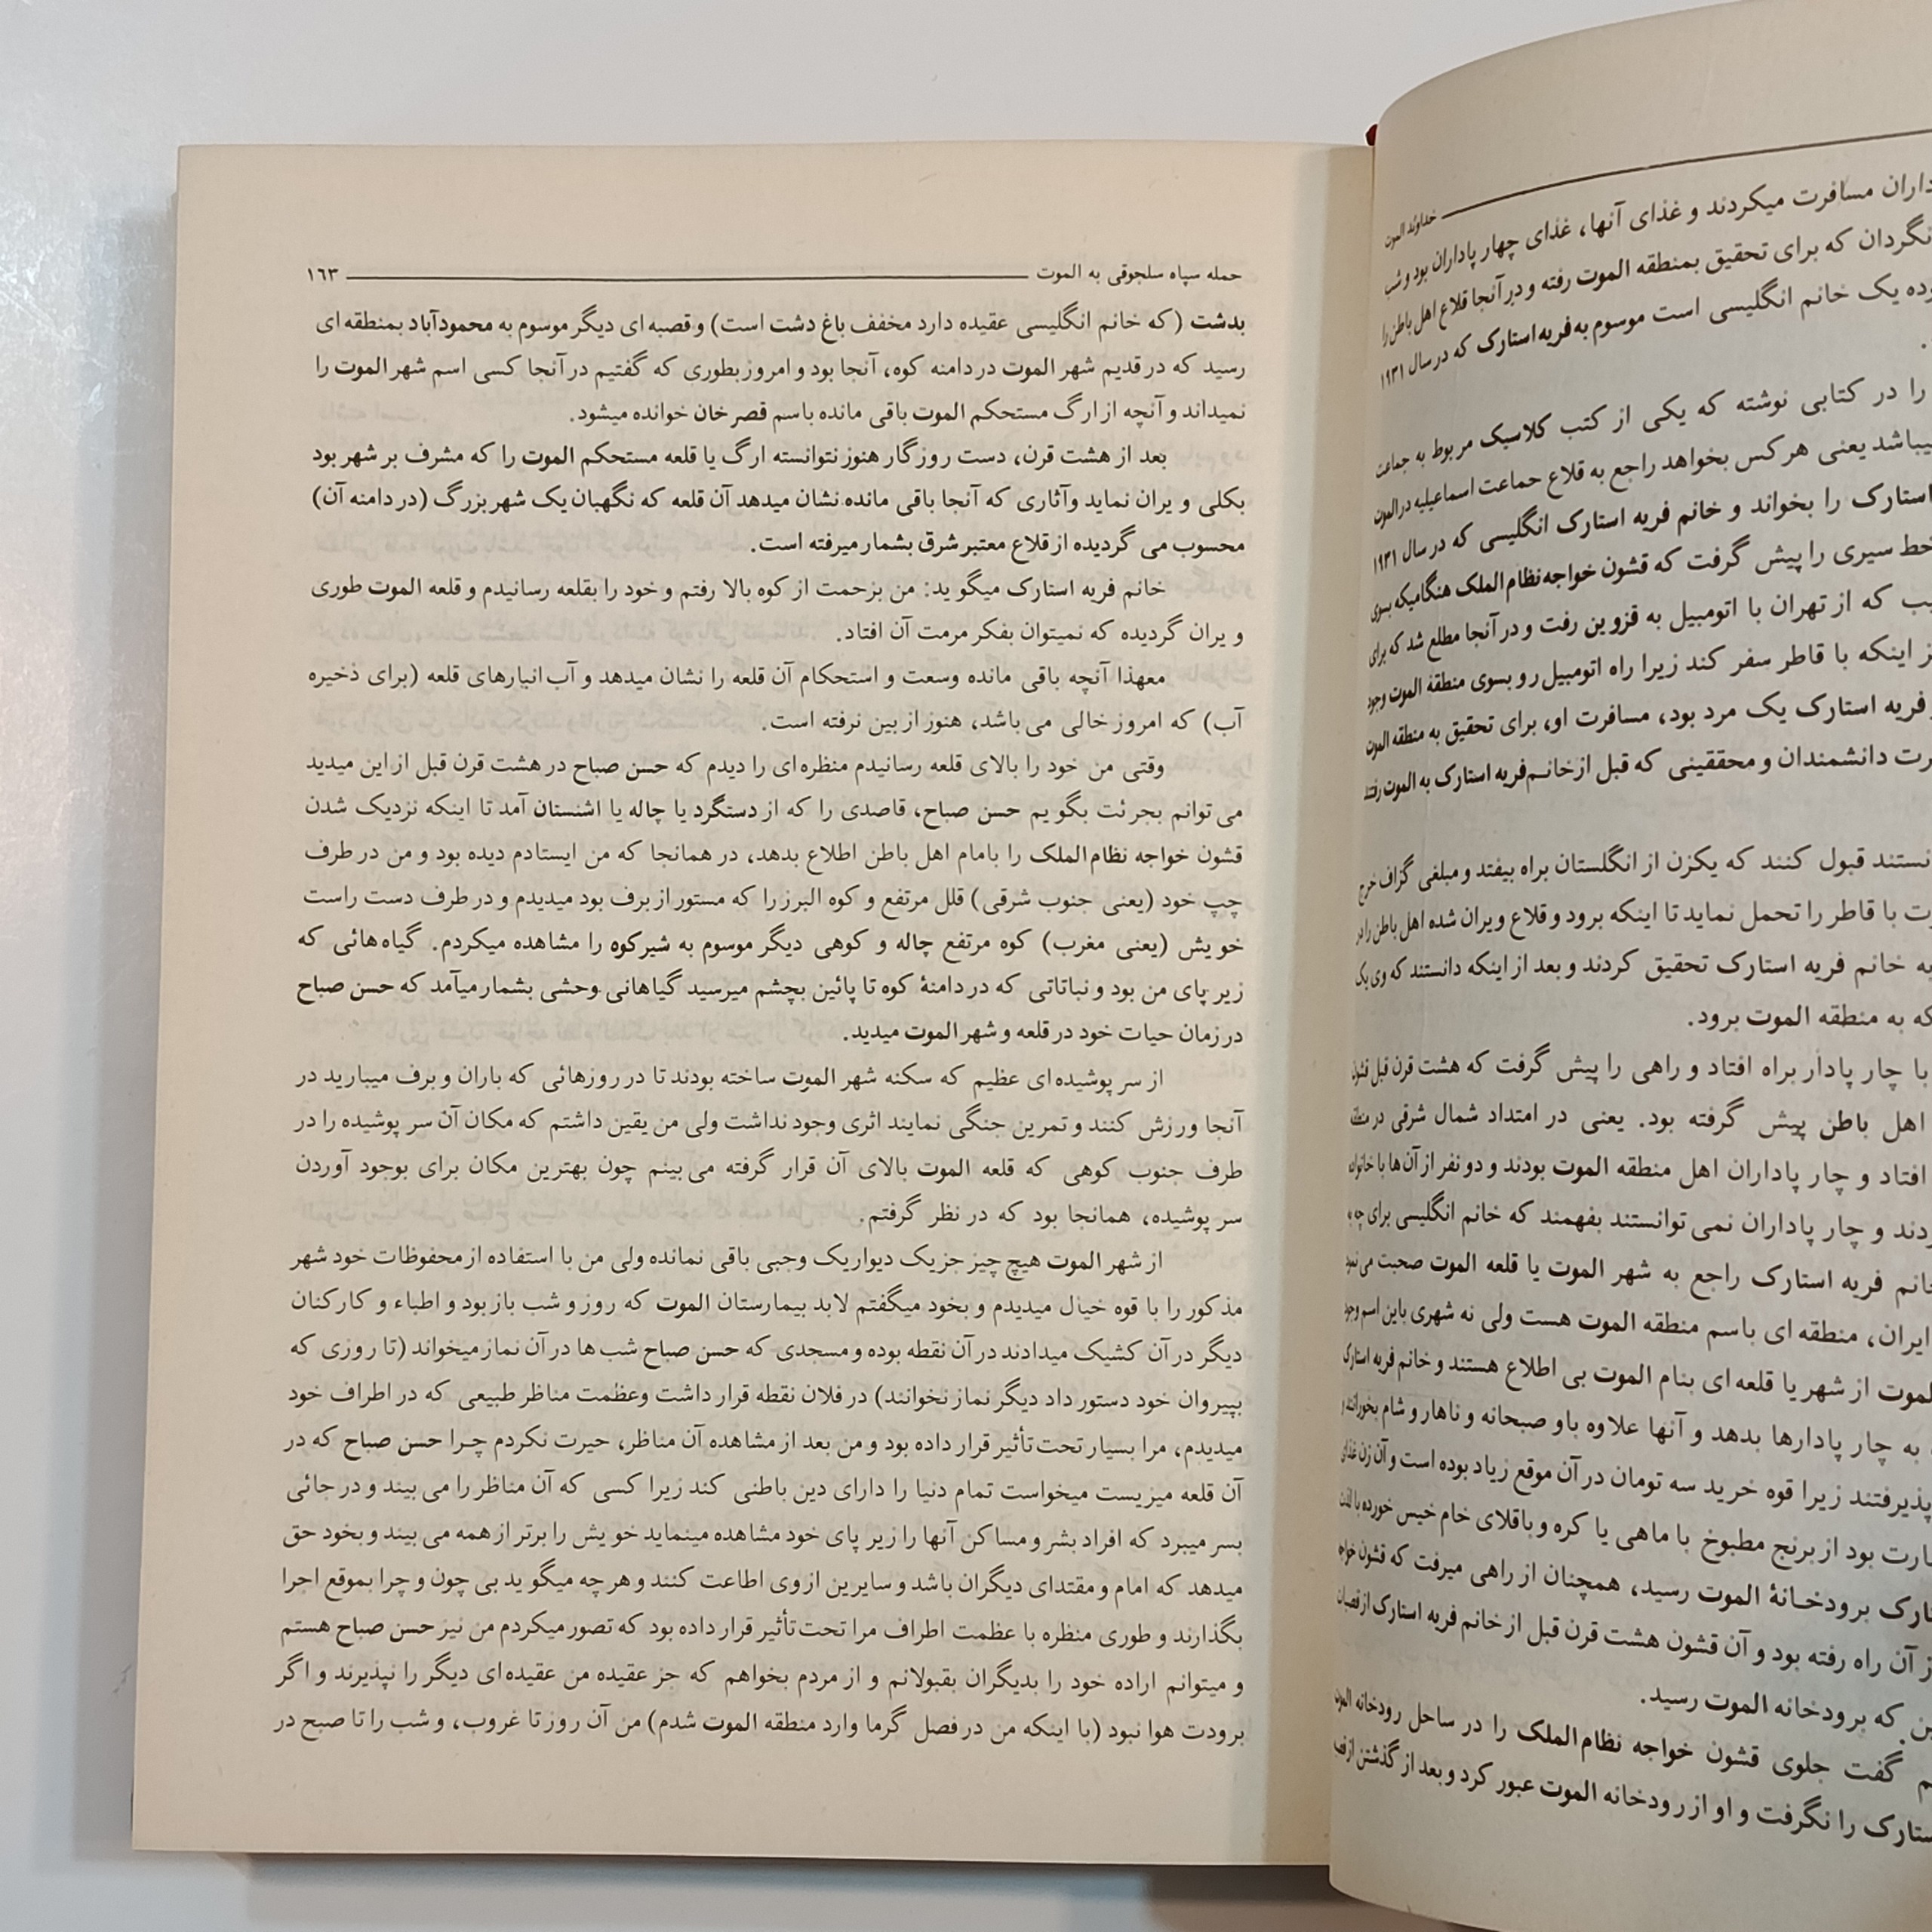 خداوند الموت
مسافرت میکردند و غذای آنها، غذای چهار پاداران بود و شب
که برای تحقیق بمنطقه الموت رفته و در آنجا قلاع اهل باطن را
یک خانم انگلیسی است موسوم به فریه استارک که در سال ۱۹۳۱
را در کتابی نوشته که یکی از کتب کلاسیک مربوط به جماعت
یعنی هرکس بخواهد راجع به قلاع جماعت اسماعیلیه در الموت
استارک را بخواند و خانم فریه استارک انگلیسی که در سال ۱۹۳۱
خط سیری را پیش گرفت که قشون خواجه نظام الملک هنگامیکه بسوی
که از تهران با اتومبیل به قزوین رفت و در آنجا مطلع شد که برای
اینکه با قاطر سفر کند زیرا راه اتومبیل رو بسوی منطقهٔ الموت وجود
فریه استارک یک مرد بود، مسافرت او، برای تحقیق به منطقه الموت
دانشمندان و محققینی که قبل از خانم فریه استارک به الموت رفتند
قبول کنند که یکزن از انگلستان براه بیفتد و مبلغی گزاف خرج
با قاطر را تحمل نماید تا اینکه برود و قلاع ویران شده اهل باطن را در
به خانم فریه استارک تحقیق کردند و بعد از اینکه دانستند که وی یک
که به منطقه الموت برود.
با چار پادار براه افتاد و راهی را پیش گرفت که هشت قرن قبل قشون
اهل باطن پیش گرفته بود. یعنی در امتداد شمال شرقی در منطقه
افتاد و چار پاداران اهل منطقه الموت بودند و دو نفر از آن‌ها با خانواده
و چار پاداران نمی توانستند بفهمند که خانم انگلیسی برای چه به
خانم فریه استارک راجع به شهر الموت یا قلعه الموت صحبت می نمود
ایران، منطقه ای باسم منطقه الموت هست ولی نه شهری باین اسم وجود
الموت از شهر یا قلعه ای بنام الموت بی اطلاع هستند و خانم فریه استارک
به چار پادارها بدهد و آنها علاوه باو صبحانه و ناهار و شام بخورانند و
زیرا قوه خرید سه تومان در آن موقع زیاد بوده است و آن زن غذای
بود از برنج مطبوخ با ماهی یا کره و باقلای خام خیس خورده با لذت
برودخانهٔ الموت رسید، همچنان از راهی میرفت که قشون خواجه
از آن راه رفته بود و آن قشون هشت قرن قبل از خانم فریه استارک از قصبات
که برودخانه الموت رسید.
گفت جلوی قشون خواجه نظام الملک را در ساحل رودخانه الموت
را نگرفت و او از رودخانه الموت عبور کرد و بعد از گذشتن از قصبه
حمله سپاه سلجوقی به الموت ۱۶۳
بدشت (که خانم انگلیسی عقیده دارد مخفف باغ دشت است) و قصبه ای دیگر موسوم به محمودآباد بمنطقه ای
رسید که در قدیم شهر الموت در دامنه کوه، آنجا بود و امروز بطوری که گفتیم در آنجا کسی اسم شهر الموت را
نمیداند و آنچه از ارگ مستحکم الموت باقی مانده باسم قصر خان خوانده میشود.
بعد از هشت قرن، دست روزگار هنوز نتوانسته ارگ یا قلعه مستحکم الموت را که مشرف بر شهر بود
بکلی ویران نماید وآثاری که آنجا باقی مانده نشان میدهد آن قلعه که نگهبان یک شهر بزرگ (در دامنه آن)
محسوب می گردیده از قلاع معتبر شرق بشمار میرفته است.
خانم فریه استارک میگوید: من بزحمت از کوه بالا رفتم و خود را بقلعه رسانیدم و قلعه الموت طوری
ویران گردیده که نمیتوان بفکر مرمت آن افتاد.
معهذا آنچه باقی مانده وسعت و استحکام آن قلعه را نشان میدهد و آب انبارهای قلعه (برای ذخیره
آب) که امروز خالی می باشد، هنوز از بین نرفته است.
وقتی من خود را بالای قلعه رسانیدم منظره ای را دیدم که حسن صباح در هشت قرن قبل از این میدید
می توانم بجرئت بگویم حسن صباح، قاصدی را که از دستگرد یا چاله یا اشنستان آمد تا اینکه نزدیک شدن
قشون خواجه نظام الملک را بامام اهل باطن اطلاع بدهد، در همانجا که من ایستادم دیده بود و من در طرف
چپ خود (یعنی جنوب شرقی) قلل مرتفع و کوه البرز را که مستور از برف بود میدیدم و در طرف دست راست
خویش (یعنی مغرب) کوه مرتفع چاله و کوهی دیگر موسوم به شیرکوه را مشاهده میکردم. گیاه هائی که
زیر پای من بود و نباتاتی که در دامنهٔ کوه تا پائین بچشم میرسید گیاهانی وحشی بشمار میآمد که حسن صباح
در زمان حیات خود در قلعه و شهر الموت میدید.
از سر پوشیده ای عظیم که سکنه شهر الموت ساخته بودند تا در روزهائی که باران و برف میبارید در
آنجا ورزش کنند و تمرین جنگی نمایند اثری وجود نداشت ولی من یقین داشتم که مکان آن سر پوشیده را در
طرف جنوب کوهی که قلعه الموت بالای آن قرار گرفته می بینم چون بهترین مکان برای بوجود آوردن
سر پوشیده، همانجا بود که در نظر گرفتم.
از شهر الموت هیچ چیز جز یک دیوار یک وجبی باقی نمانده ولی من با استفاده از محفوظات خود شهر
مذکور را با قوه خیال میدیدم و بخود میگفتم لابد بیمارستان الموت که روز و شب باز بود و اطباء و کارکنان
دیگر در آن کشیک میدادند در آن نقطه بوده و مسجدی که حسن صباح شب ها در آن نماز میخواند (تا روزی که
بپیروان خود دستور داد دیگر نماز نخوانند) در فلان نقطه قرار داشت وعظمت مناظر طبیعی که در اطراف خود
میدیدم، مرا بسیار تحت تأثیر قرار داده بود و من بعد از مشاهده آن مناظر، حیرت نکردم چرا حسن صباح که در
آن قلعه میزیست میخواست تمام دنیا را دارای دین باطنی کند زیرا کسی که آن مناظر را می بیند و در جائی
بسر میبرد که افراد بشر و مساکن آنها را زیر پای خود مشاهده مینماید خویش را برتر از همه می بیند و بخود حق
میدهد که امام و مقتدای دیگران باشد و سایرین از وی اطاعت کنند و هر چه میگوید بی چون و چرا بموقع اجرا
بگذارند و طوری منظره با عظمت اطراف مرا تحت تأثیر قرار داده بود که تصور میکردم من نیز حسن صباح هستم
و میتوانم اراده خود را بدیگران بقبولانم و از مردم بخواهم که جز عقیده من عقیده ای دیگر را نپذیرند و اگر
برودت هوا نبود (با اینکه من در فصل گرما وارد منطقه الموت شدم) من آن روز تا غروب، و شب را تا صبح در